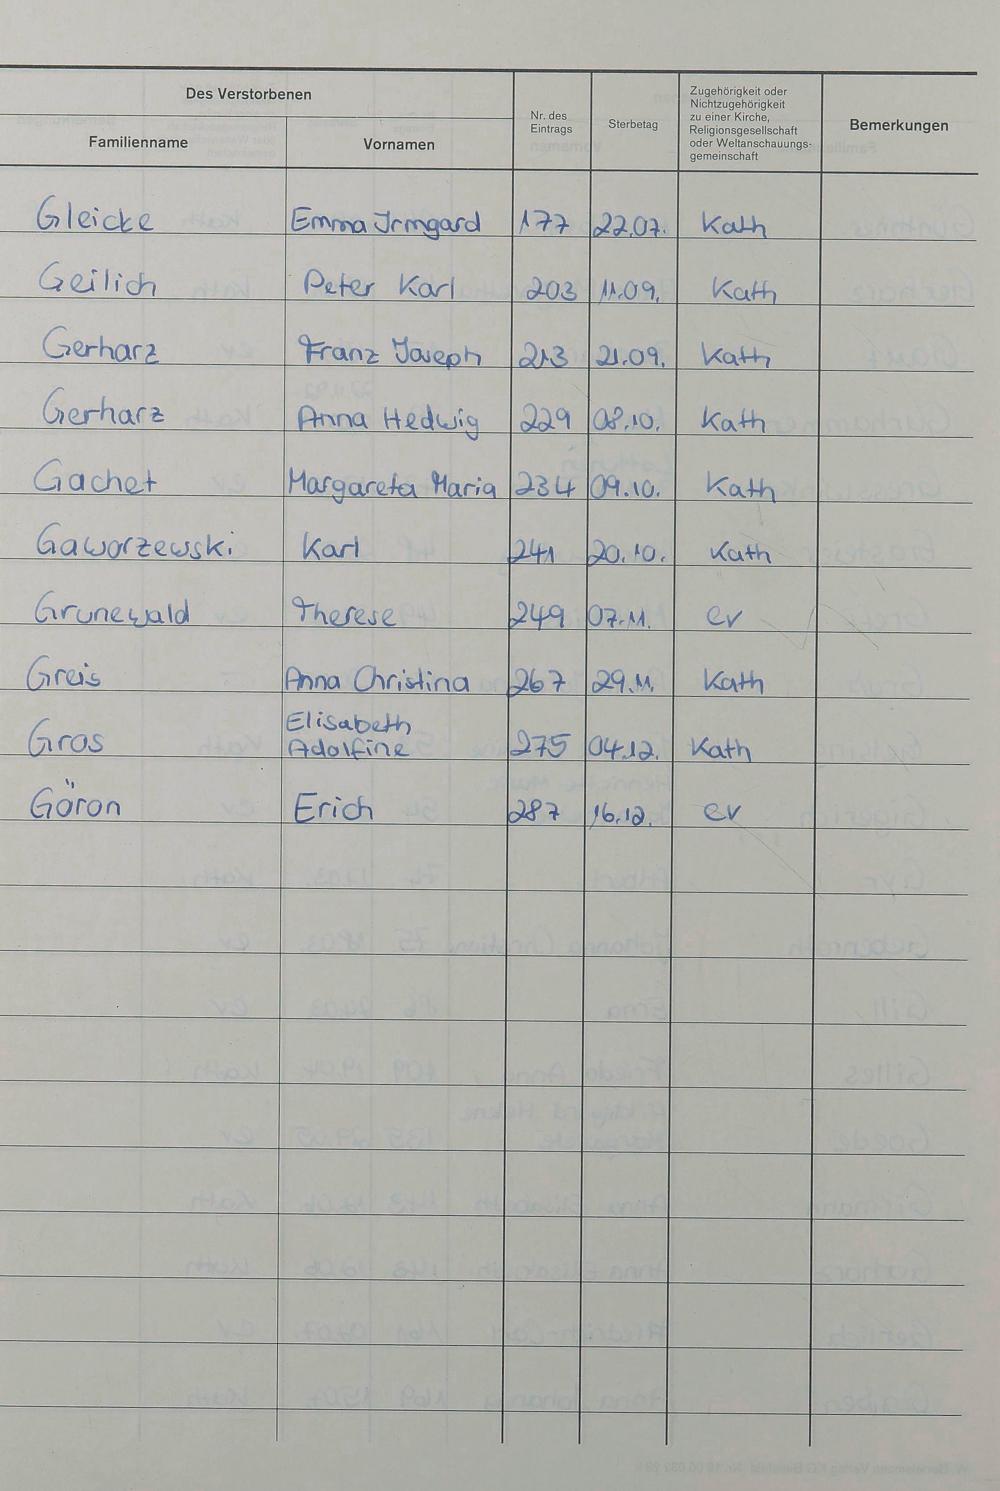 Des Verstorbenen
Familienname
Vornamen
Nr. des
Eintrags
Sterbetag
Zugehörigkeit oder
Nichtzugehörigkeit
zu einer Kirche,
Religionsgesellschaft
oder Weltanschauungs-
gemeinschaft
Bemerkungen
Gleicke Emma Irmgard 177 22.07. Kath
Geilich Peter Karl 203 11.09. Kath
Gerharz Franz Joseph 213 21.09. Kath
Gerharz Anna Hedwig 229 08.10. Kath
Gachet Margareta Maria 234 09.10. Kath
Gaworzewski Karl 241 20.10. Kath
Grunewald Therese 249 07.11. ev
Greis Anna Christina 267 29.11. Kath
Elisabeth
Gros Adolfine 275 04.12. Kath
Göron Erich 287 16.12. ev